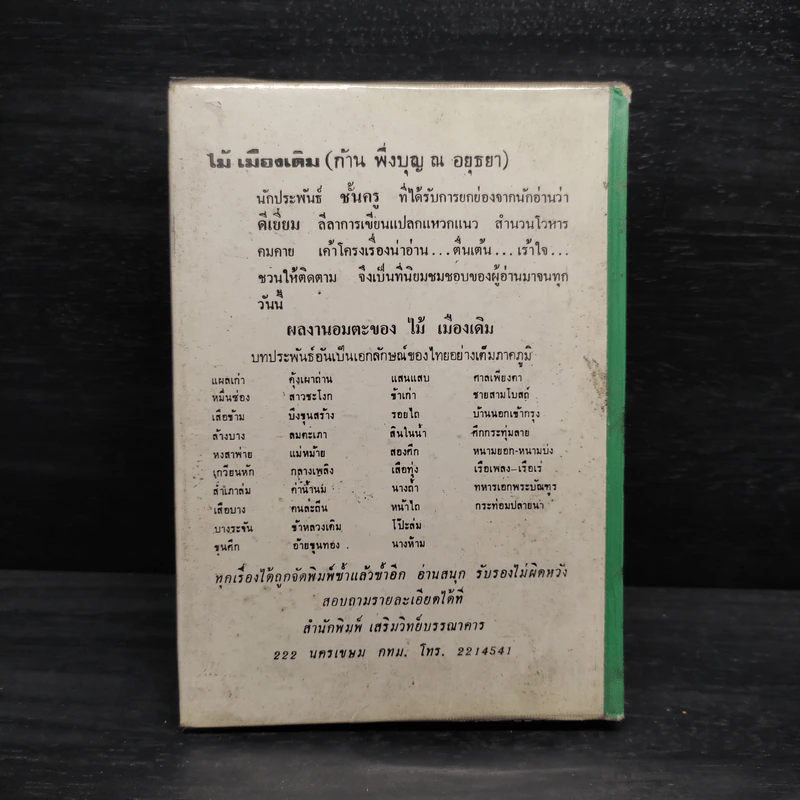 ไม้ เมืองเดิม (ก้าน พึ่งบุญ ณ อยุธยา)
นักประพันธ์ ชั้นครู ที่ได้รับการยกย่องจากนักอ่านว่า
ดีเยี่ยม ลีลาการเขียนแปลกแหวกแนว สำนวนโวหาร
คมคาย เค้าโครงเรื่องน่าอ่าน...ตื่นเต้น...เร้าใจ...
ชวนให้ติดตาม จึงเป็นที่นิยมชมชอบของผู้อ่านมาจนทุก
วันนี้
ผลงานอมตะของ ไม้ เมืองเดิม
บทประพันธ์อันเป็นเอกลักษณ์ของไทยอย่างเต็มภาคภูมิ
แผลเก่า คุ้งเผาถ่าน แสนแสบ ศาลเพียงตา
หมื่นซ่อง สาวชะโงก ข้าเก่า ชายสามโบสถ์
เสือข้าม บึงขุนสร้าง รอยไถ บ้านนอกเข้ากรุง
ล้างบาง ลมตะเภา สินในน้ำ ศึกกระทุ่มลาย
หงสาพ่าย แม่หม้าย สองศึก หนามยอก-หนามบ่ง
เกวียนหัก กลางเพลิง เสือทุ่ง เรือเพลง-เรือเร่
สำเภาล่ม ค่าน้ำนม นางถ้ำ ทหารเอกพระบัณฑูร
เสือบาง คนละถิ่น หน้าไถ กระท่อมปลายนา
บางระจัน ข้าหลวงเดิม โป๊ะล่ม
ขุนศึก อ้ายขุนทอง นางห้าม
ทุกเรื่องได้ถูกจัดพิมพ์ซ้ำแล้วซ้ำอีก อ่านสนุก รับรองไม่ผิดหวัง
สอบถามรายละเอียดได้ที่
สำนักพิมพ์ เสริมวิทย์บรรณาคาร
222 นครเขษม กทม. โทร. 2214541